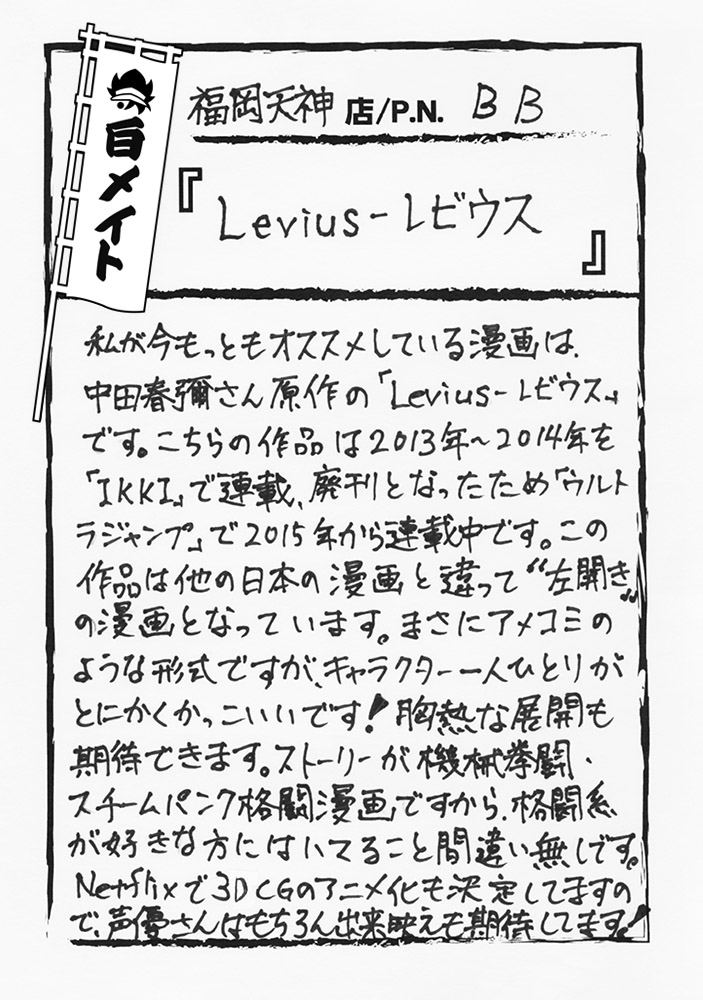 百メイト
福岡天神 店/P.N. BB
『Levius-レビウス』
私が今もっともオススメしている漫画は、
中田春彌さん原作の「Levius-レビウス」
です。こちらの作品は2013年～2014年を
「IKKI」で連載、廃刊となったため「ウルト
ラジャンプ」で2015年から連載中です。この
作品は他の日本の漫画と違って“左開き”
の漫画となっています。まさにアメコミの
ような形式ですが、キャラクター一人ひとりが
とにかくかっこいいです！胸熱な展開も
期待できます。ストーリーが機械拳闘・
スチームパンク格闘漫画ですから、格闘系
が好きな方にはハマること間違い無しです。
Netflixで3DCGのアニメ化も決定してますの
で、声優さんはもちろん出来映えも期待してます！